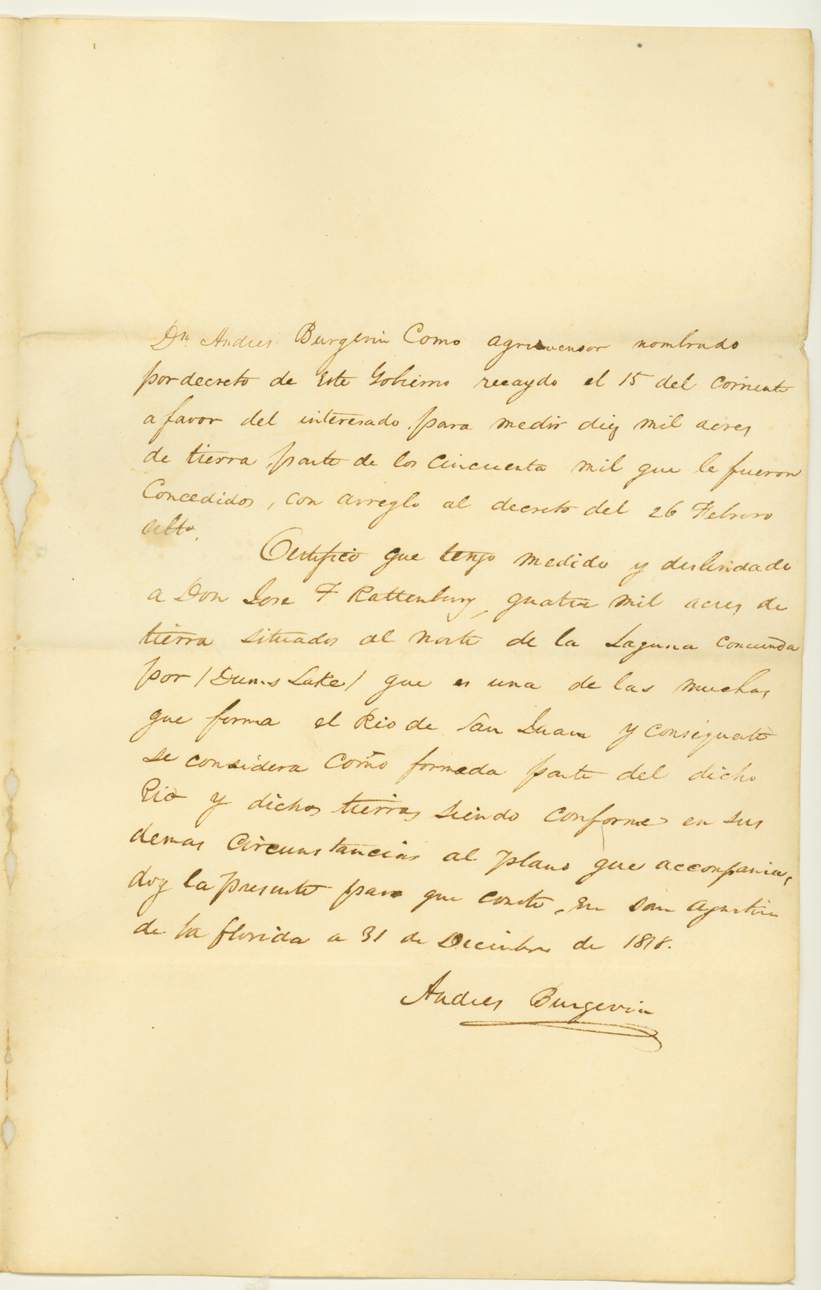 Dn Andres Burgevin Como agrimensor nombrado
por decreto de Este Gobierno recaydo el 15 del corriente
a favor del interesado, para medir diez mil acres
de tierra, parte de los Cincuenta mil que le fueron
Concedidos, con arreglo al decreto del 26 Febrero
ulto.
Certifico que tengo medido y deslindado
a Don Jose F Rattenbury, quatro mil acres de
tierra situados al norte de la Laguna Conocida
por /Dunns Lake/ que es una de las muchas
que forma el Rio de San Juan y consiguate
se considera como formada parte del dicho
Rio y dichas tierras siendo conforme en sus
demas Circunstancias al plano que accompania,
doy la presente para que conste, En san Agustin
de la florida a 31 de Diciembre de 1818.
Andres Burgevin